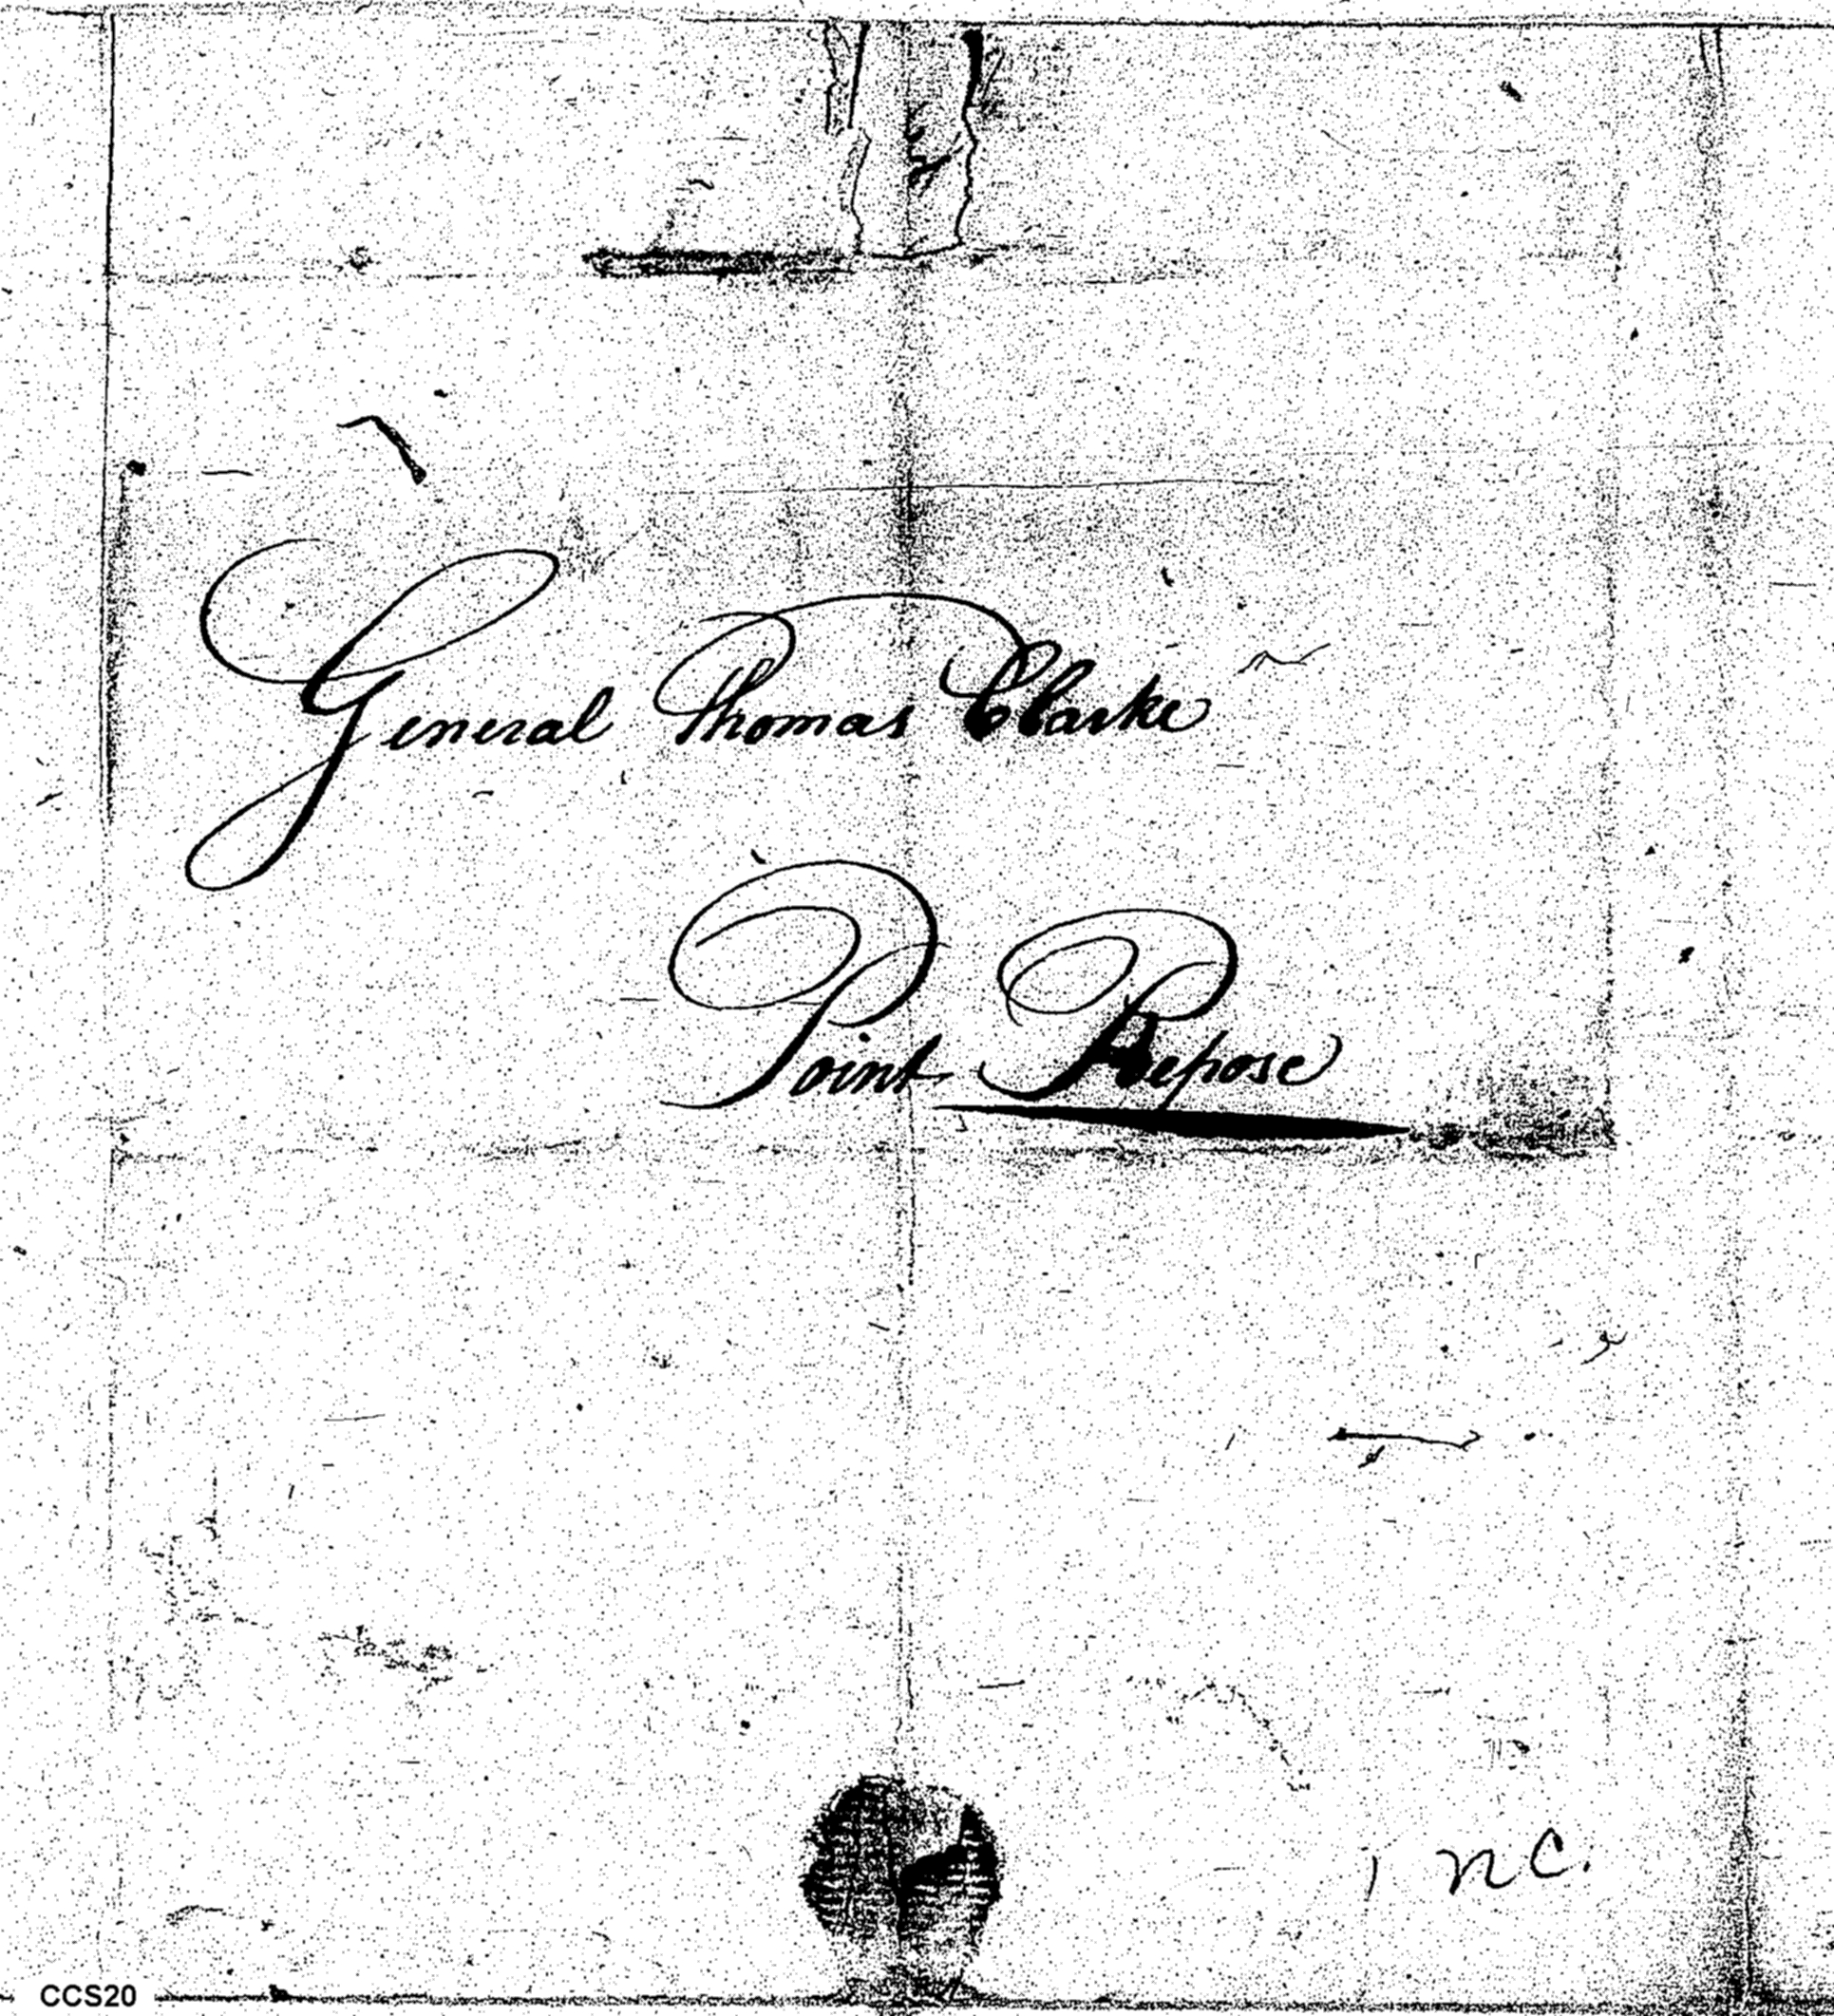 General Thomas Clarke
Point Repose
1 nc.
CCS20